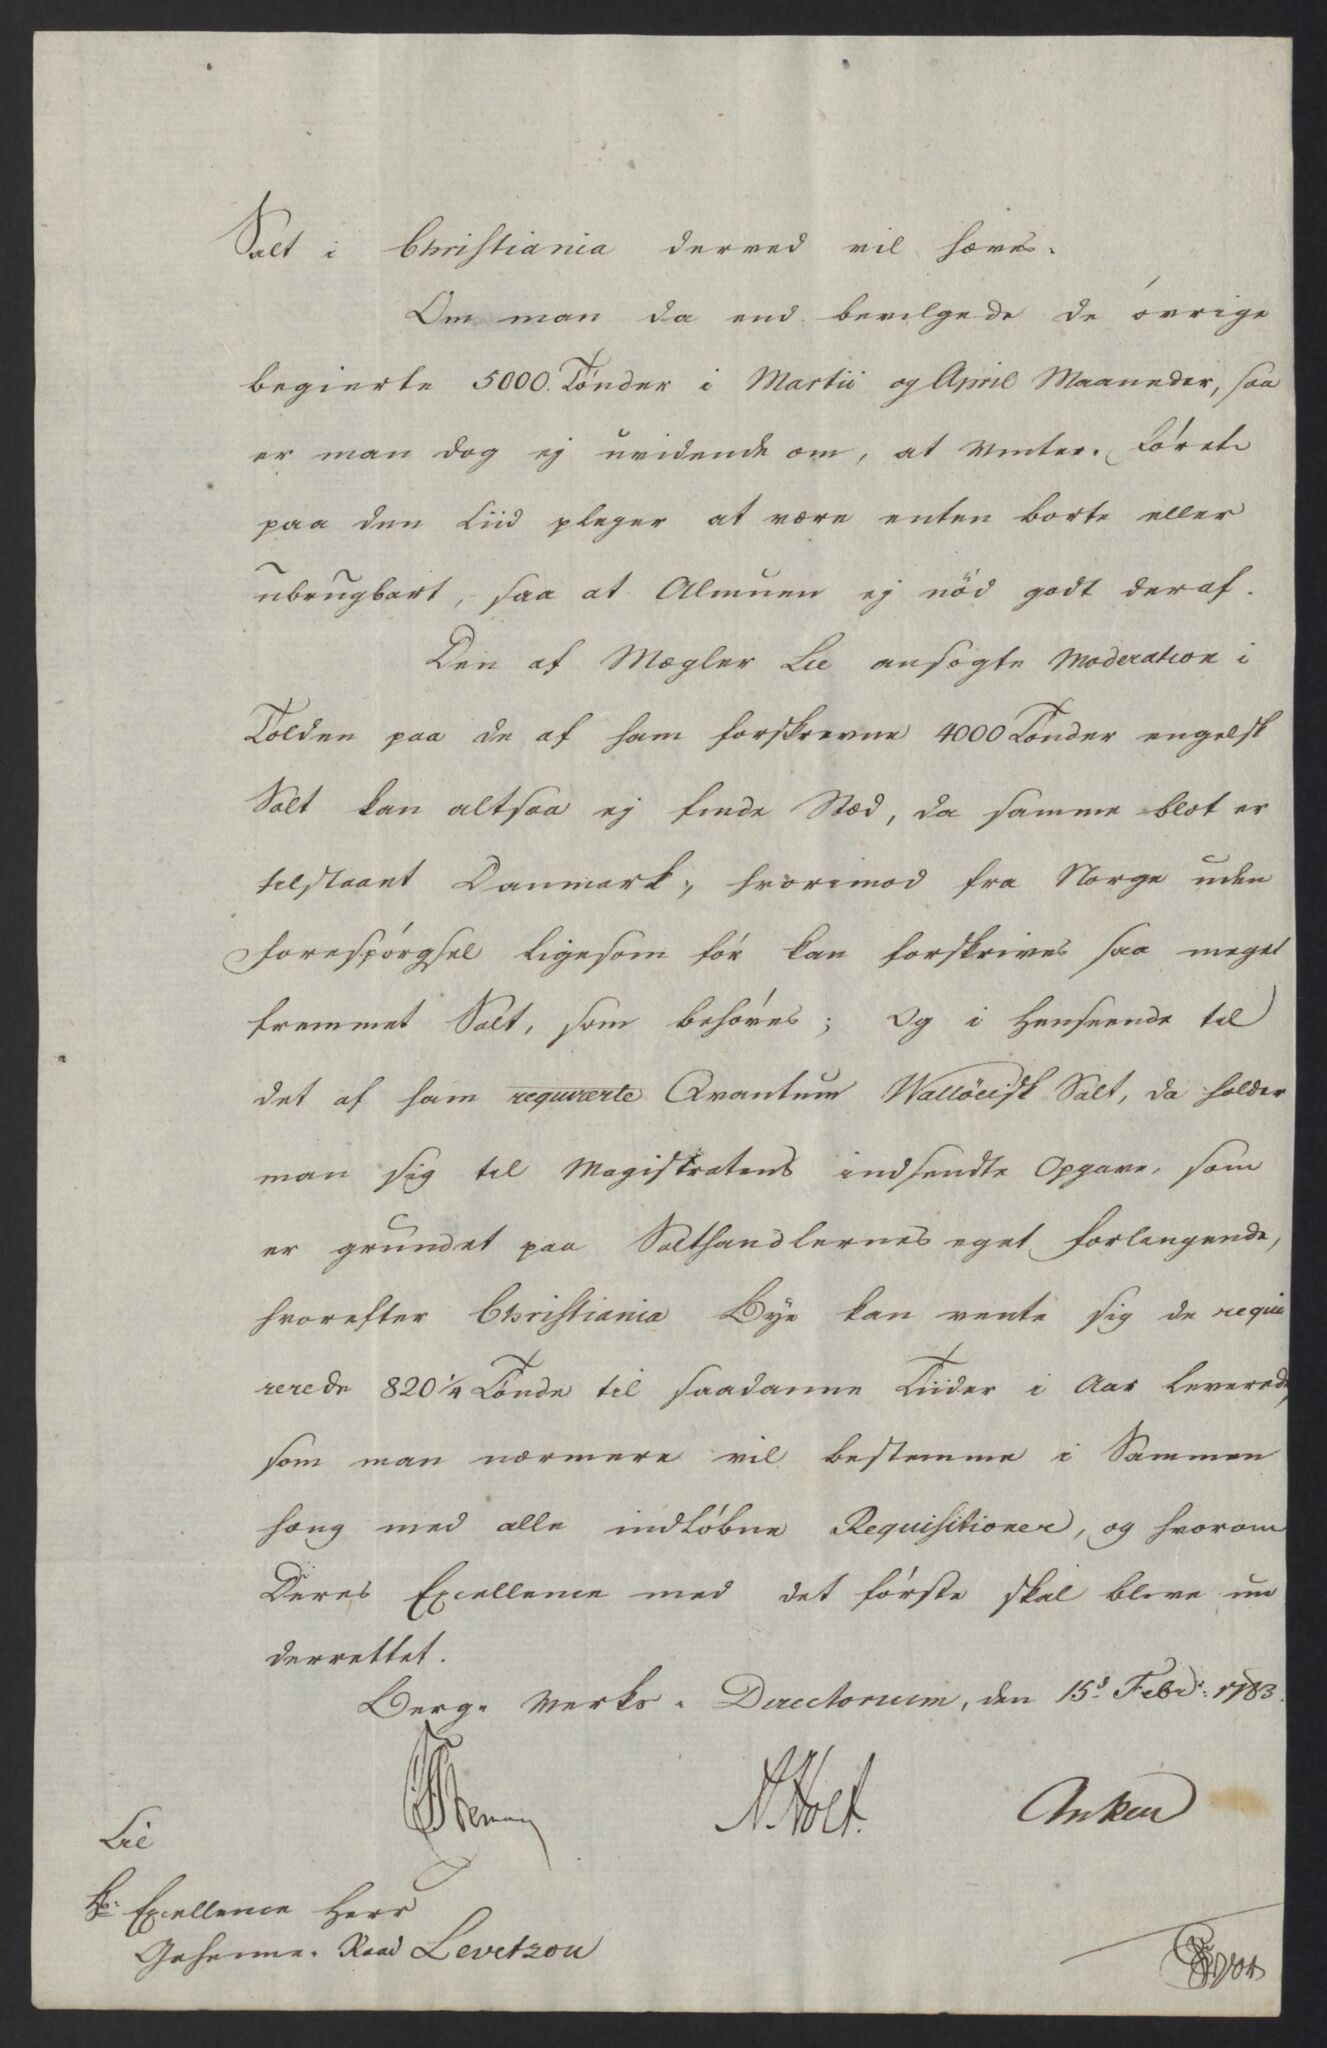 Salt i Christiania derved vil hæves.
Om man da end bevilgede de øvrige
begierte 5000. Tønder i Martii og April Maaneder, saa
er man dog ej uvidende om, at Vinter-Føret
paa den Tiid pleger at være enten borte eller
ubrugbart, saa at Almuen ej nød godt deraf.
Den af Mægler Lie ansøgte Moderation i
Tolden paa de af ham forskrevne 4000 Tønder engelsk
Salt kan altsaa ej finde Stæd, da samme blot er
tilstaaet Danmark, hvorimod fra Norge uden
Forespørgsel ligesom før kan forskrives saa meget
fremmet Salt, som behøves; Og i Henseende til
det af ham requirerte Qvantum Walløeisk Salt, da holder
man sig til Magistratens indsendte Opgave, som
er grundet paa Salthandlernes eget Forlangende,
hvorefter Christiania Bye kan vente sig de requi
rerede 820 1/4 Tønde til saadanne Tiider i Aar leverede,
som man nærmere vil bestemme i Sammen
hæng med alle indløbne Requisitioner, og hvorom
Deres Excellence med det første skal blive un
derrettet.
Berg-Verks-Directorium, den 15d Febr: 1783.
N. Holt. Anker
Til
Hs: Excellence Herr
Geheime-Raad Levetzou